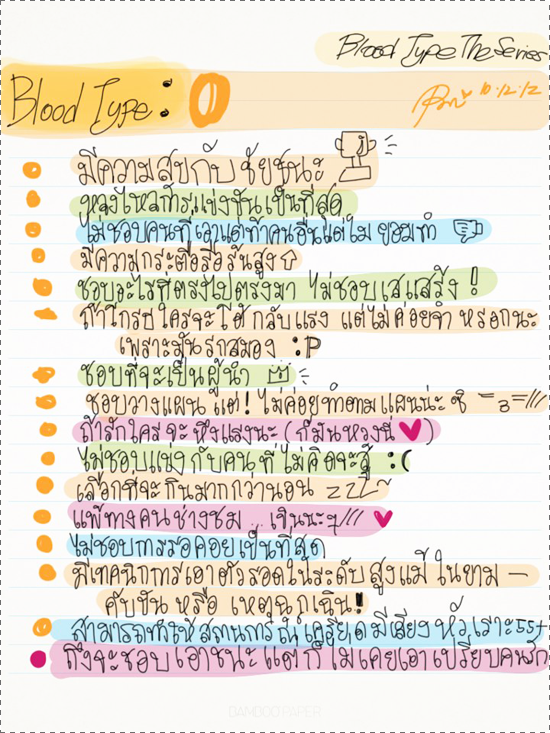 Blood Type The Series
Blood Type : O
10.12.12
มีความสุขกับ ชัยชนะ
หลงใหลการแข่งขันเป็นที่สุด
ไม่ชอบคนที่เอาแต่ท้าคนอื่นแต่ไม่ ยอมทำ
มีความกระตือรือร้นสูง
ชอบอะไรที่ตรงไปตรงมา ไม่ชอบเสแสร้ง !
ถ้าโกรธ ใครจะโต้กลับแรง แต่ไม่ค่อยจำ หรอกนะ
เพราะมันรกสมอง :P
ชอบที่จะเป็นผู้นำ
ชอบวางแผน แต่! ไม่ค่อยทำตามแผนน่ะซิ
ถ้ารักใครจะหึงแรงนะ (ก็มันหวงนี่ ♥)
ไม่ชอบแข่งกับคนที่ไม่คิดจะสู้ :(
เลือกที่จะกินมากกว่านอน zzz
แพ้ทางคนช่างชม ... เขินนะ ♥
ไม่ชอบการรอคอยเป็นที่สุด
มีเทคนิกการเอาตัวรอดในระดับสูงแม้ในยาม –
คับขัน หรือ เหตุฉุกเฉิน!
สามารถทำให้สถานการณ์เครียด มีเสียงหัวเราะ 55+
ถึงจะชอบเอาชนะ แต่ก็ไม่เคยเอาเปรียบคนรัก
BAMBOO PAPER